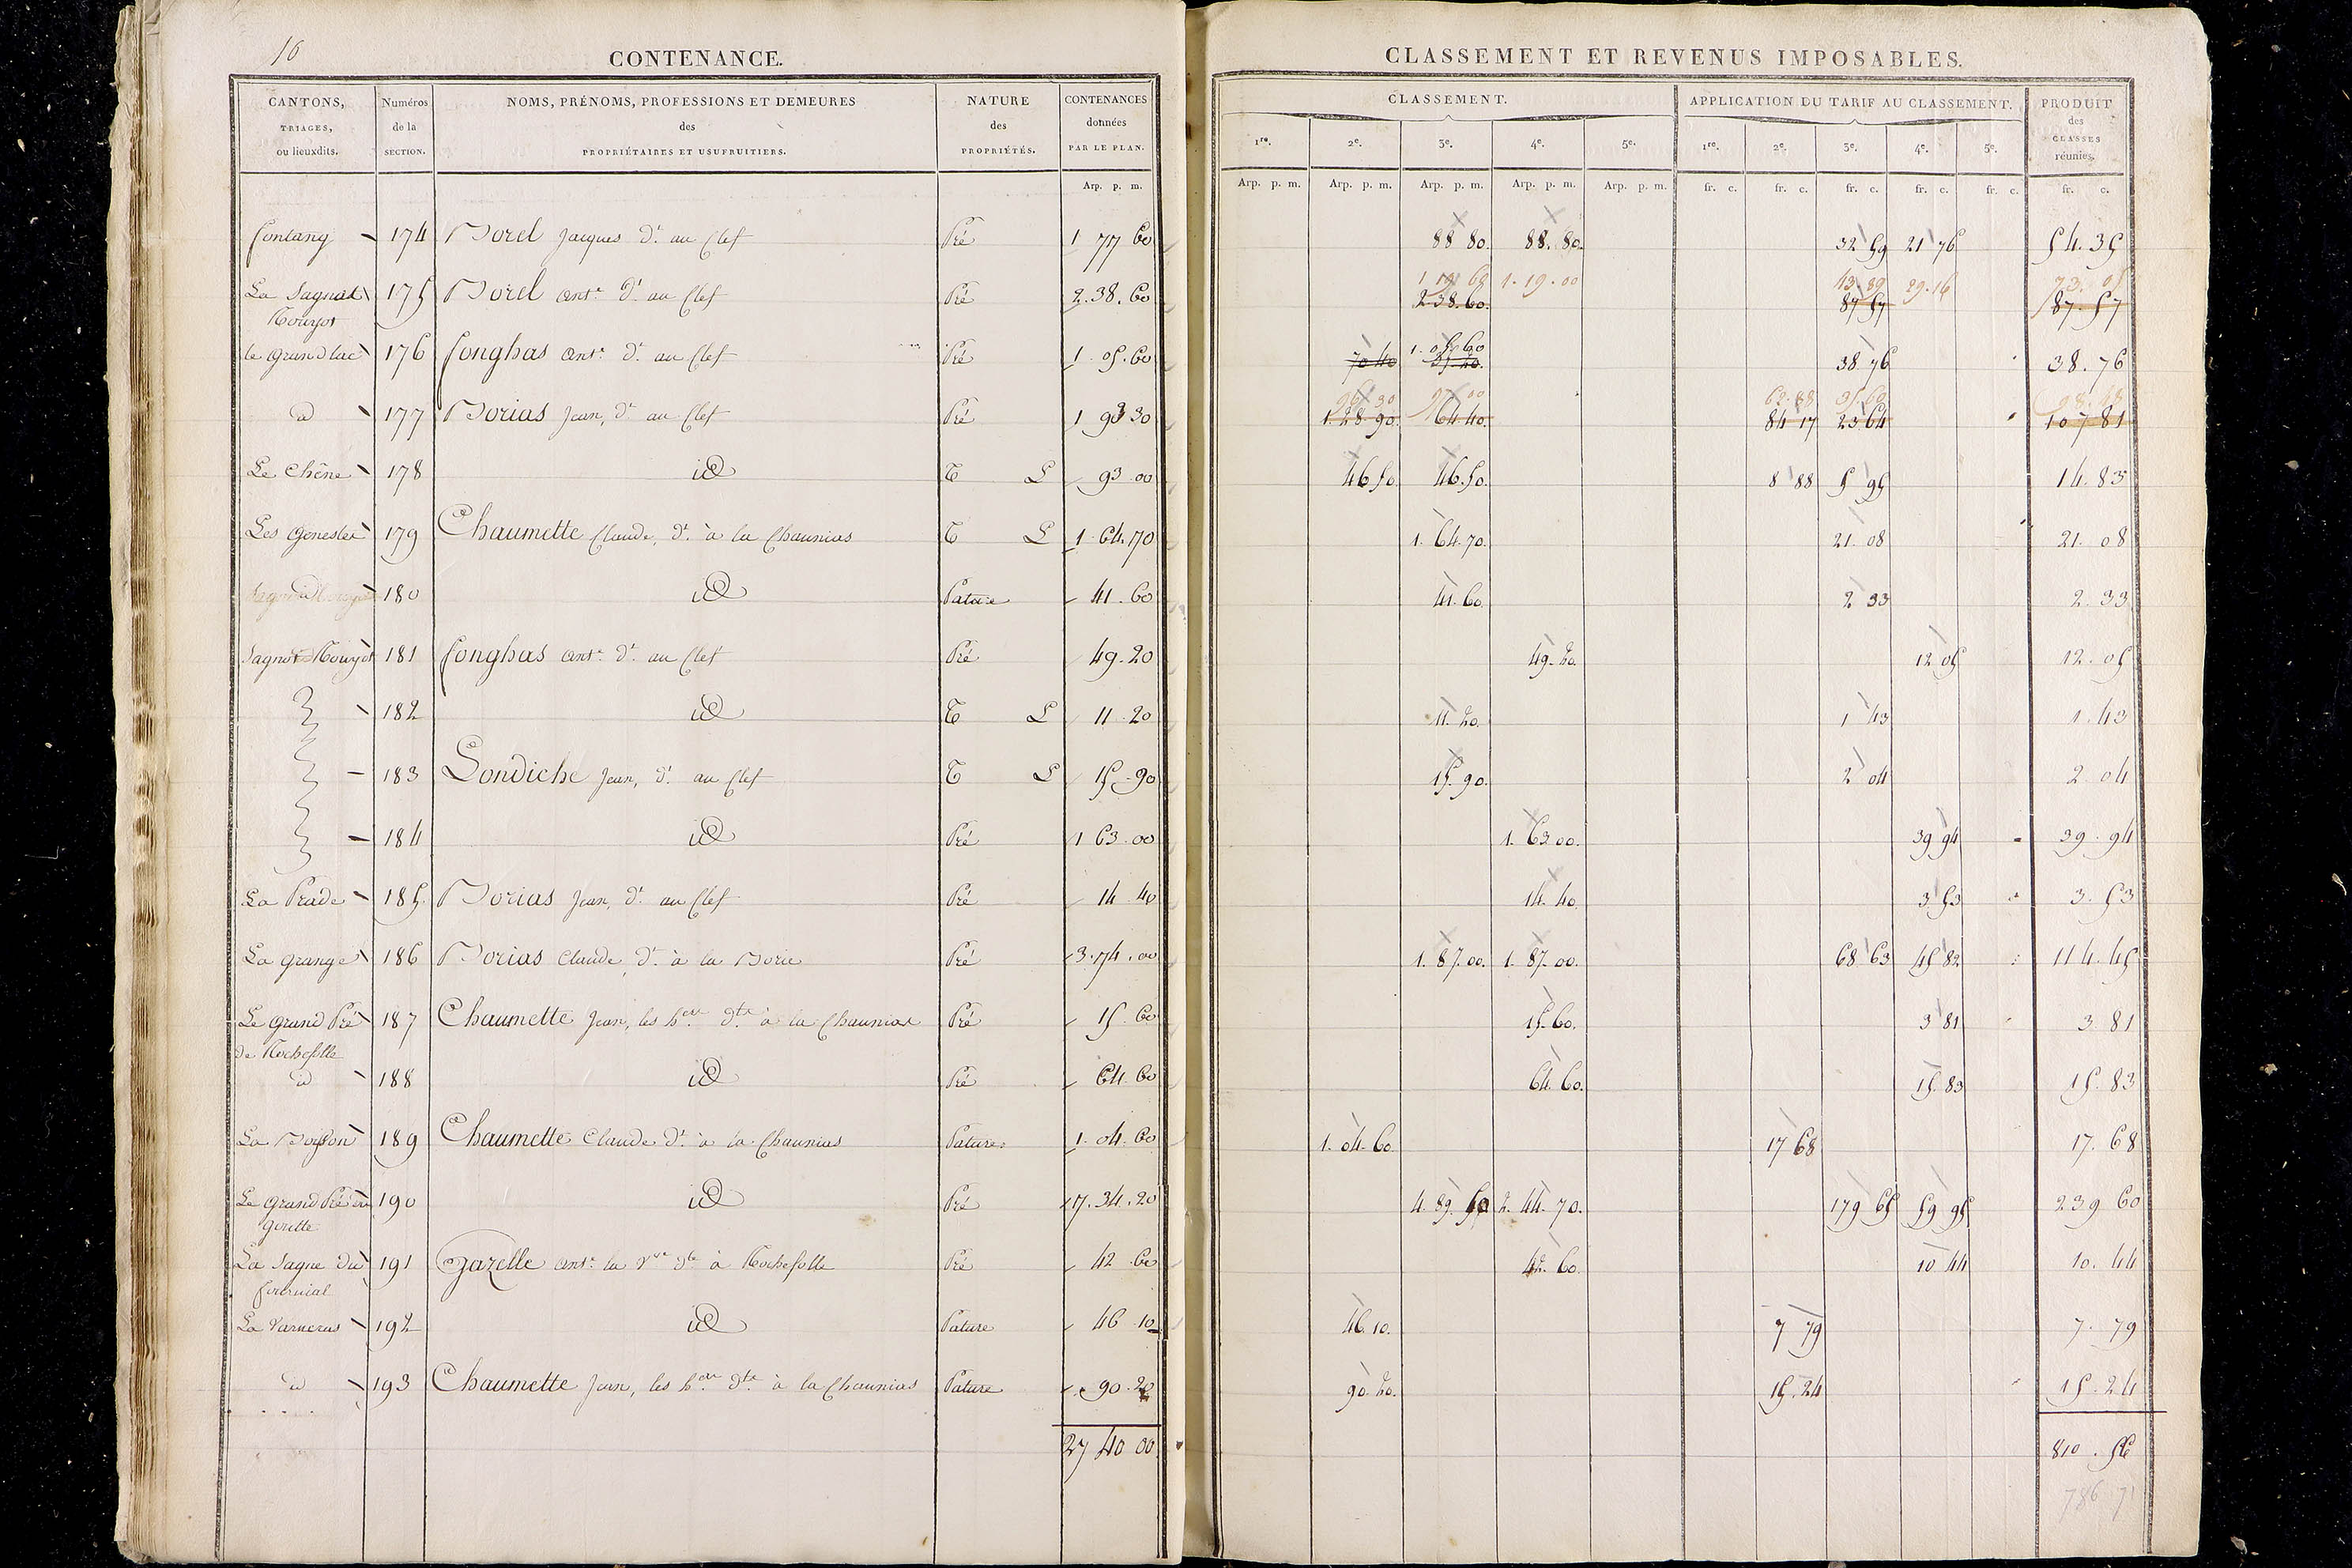 16
CONTENANCE.
CANTONS, TRIAGES, ou lieuxdits.
Numéros de la SECTION.
NOMS, PRÉNOMS, PROFESSIONS ET DEMEURES des PROPRIÉTAIRES ET USUFRUITIERS.
NATURE des PROPRIÉTÉS.
CONTENANCES données PAR LE PLAN.
Arp. p. m.
CLASSEMENT ET REVENUS IMPOSABLES.
CLASSEMENT.
APPLICATION DU TARIF AU CLASSEMENT.
PRODUIT des CLASSES réunies.
1re. 2e. 3e. 4e. 5e. 1re. 2e. 3e. 4e. 5e.
Arp. p. m. Arp. p. m. Arp. p. m. Arp. p. m. Arp. p. m. fr. c. fr. c. fr. c. fr. c. fr. c. fr. c.
fontany 174 Borel Jacques dt. au Clef Pré 1 77 60 88 80. 88. 80. 32 59 21 76 54. 35
1 19 60 1. 19. 00 43 89 29. 16 73. 05
La Sagnat 175 Borel antne. dt. au Clef Pré 2. 38. 60 2 38. 60. 87 57 87. 57
Rouyot
1. 05 60
le grand lac 176 fonghas antne. dt. au Clef Pré 1. 05. 60 70 40 35. 20. 38 76 38. 76
96 30 97 00 62. 88 35. 60 98. 48
id 177 Borias Jean, dt. au Clef Pré 1 93 30 1. 28. 90. 64. 40. 84 17 23 64 107 81
Le Chêne 178 id T L 93. 00 46 50. 46. 50. 8 88 5 95 14. 83
Les Genestes 179 Chaumette Claude, dt. à la Chaunias T L 1. 64. 70 1. 64. 70. 21. 08 21. 08
180 id Pature 41. 60 41. 60. 2 33 2. 33
Sagnat Rouyot 181 fonghas antne. dt. au Clef Pré 49. 20 49. 20. 12 05 12. 05
182 id T L 11. 20 11. 20. 1 43 1. 43
183 Londiche Jean, dt. au Clef T L 15. 90 15. 90. 2 04 2. 04
184 id Pré 1 63. 00 1. 63 00. 39 94 39. 94
La Prade 185. Borias Jean, dt. au Clef Pré 14 40 14. 40. 3 53 3. 53
La grange 186 Borias Claude dt. à la Borie Pré 3. 74. 00 1. 87. 00. 1. 87. 00. 68 63 45 82 114. 45
Le Grand Pré 187 Chaumette Jean, les hers. dts. à la Chaunias Pré 15. 60 15. 60. 3 81 3. 81
de Rochefolle
id 188 id Pré 64. 60 64. 60. 15. 83 15. 83
La 189 Chaumette Claude dt. à la Chaunias Pature 1. 04. 60 1. 04. 60. 17 68 17. 68
Le Grand Pré 190 id Pré 7. 34. 20 4. 89. 50 2. 44. 70. 179 65 59 95 239 60
goutte
La Sagne du 191 Gazelle antne. la vve dte à Rochefolle Pré 42. 60 42. 60. 10 44 10. 44
fournial
La Varneras 192 id Pature 46 10 46. 10. 7 79 7. 79
id 193 Chaumette Jean, les hers. dts. à la Chaunias Pature 90. 20 90. 20. 15. 24 15. 24
27 40 00 810. 56
786 71